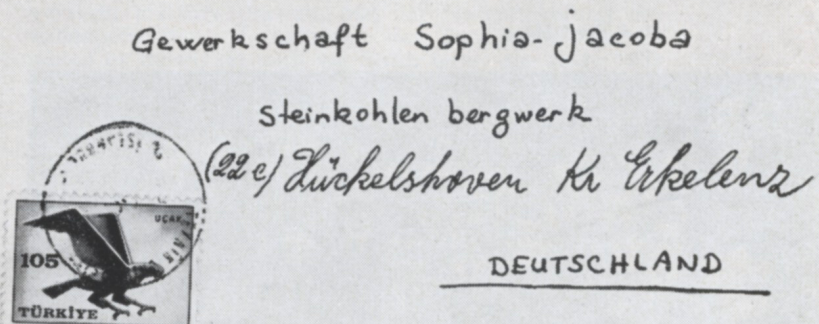 Gewerkschaft Sophia-Jacoba
Steinkohlen bergwerk
(22c) Hückelshoven Kr Erkelenz
DEUTSCHLAND
UÇAK
105
TÜRKİYE